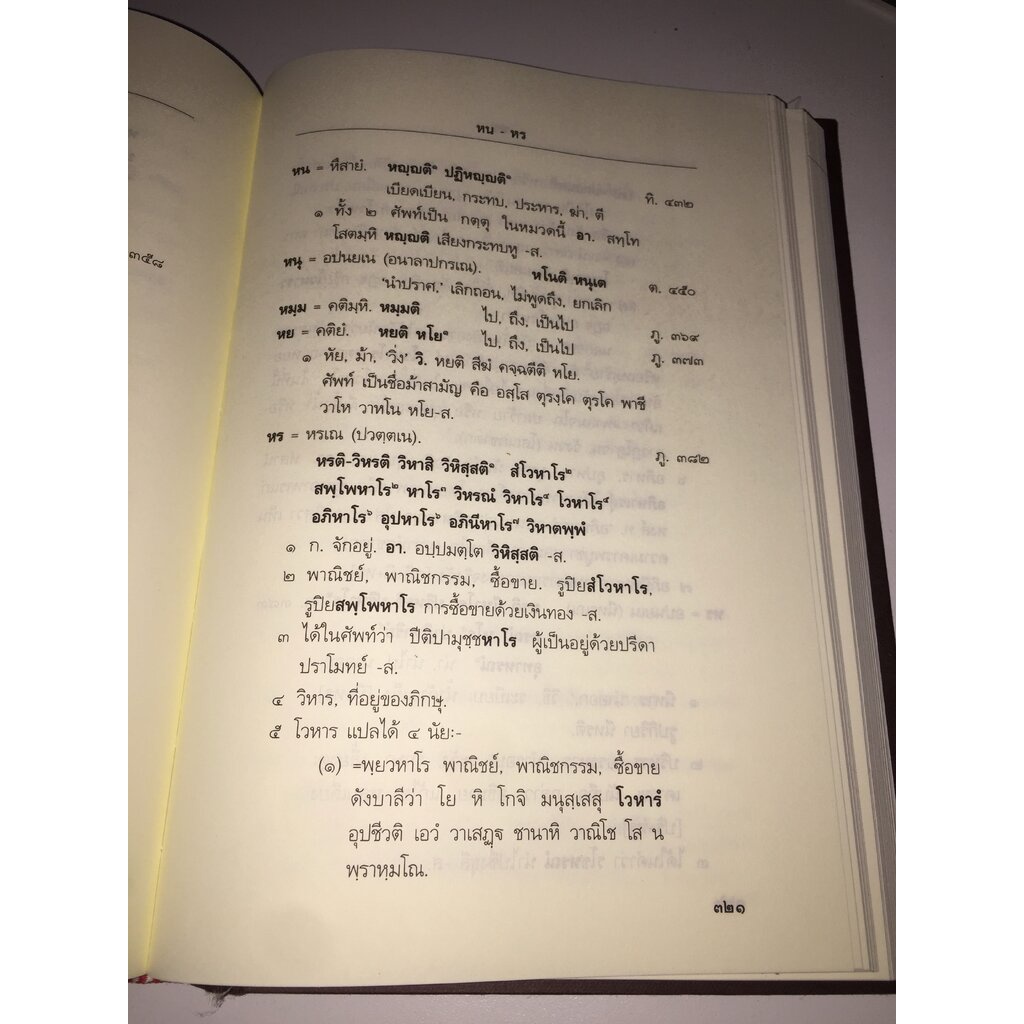 ๓๕๘
หน - หร
หน = หึสายํ. หญฺญติ๑ ปฏิหญฺญติ๑ ทิ. ๔๓๒
เบียดเบียน, กระทบ, ประหาร, ฆ่า, ตี
๑ ทั้ง ๒ ศัพท์เป็น กตฺตุ ในหมวดนี้ อา. สทฺโท
โสตมฺหิ หญฺญติ เสียงกระทบหู -ส.
หนุ = อปนยเน (อนาลาปกรเณ). หโนติ หนุเต ต. ๔๕๐
'นำปราศ,' เลิกถอน, ไม่พูดถึง, ยกเลิก
หมฺม = คติมฺหิ. หมฺมติ ไป, ถึง, เป็นไป ภู. ๓๖๙
หย = คติยํ. หยติ หโย๑ ไป, ถึง, เป็นไป ภู. ๓๗๓
๑ หัย, ม้า, 'วิ่ง' วิ. หยติ สีฆํ คจฺฉตีติ หโย.
ศัพท์ เป็นชื่อม้าสามัญ คือ อสฺโส ตุรงฺโค ตุรโค พาชี
วาโห วาหโน หโย-ส.
หร = หรเณ (ปวตฺตเน). ภู. ๓๘๒
หรติ-วิหรติ วิหาสิ วิหิสฺสติ๑ สํโวหาโร๒
สพฺโพหาโร๒ หาโร๓ วิหรณํ วิหาโร๔ โวหาโร๕
อภิหาโร๖ อุปหาโร๖ อภินีหาโร๗ วิหาตพฺพํ
๑ ก. จักอยู่. อา. อปฺปมตฺโต วิหิสฺสติ -ส.
๒ พาณิชย์, พาณิชกรรม, ซื้อขาย. รูปิยสํโวหาโร,
รูปิยสพฺโพหาโร การซื้อขายด้วยเงินทอง -ส.
๓ ได้ในศัพท์ว่า ปีติปามุชฺชหาโร ผู้เป็นอยู่ด้วยปรีดา
ปราโมทย์ -ส.
๔ วิหาร, ที่อยู่ของภิกษุ.
๕ โวหาร แปลได้ ๔ นัย:-
(๑) =พฺยวหาโร พาณิชย์, พาณิชกรรม, ซื้อขาย
ดังบาลีว่า โย หิ โกจิ มนุสฺเสสุ โวหารํ
อุปชีวติ เอวํ วาเสฏฺฐ ชานาหิ วาณิโช โส น
พฺราหฺมโณ.
๓๒๑